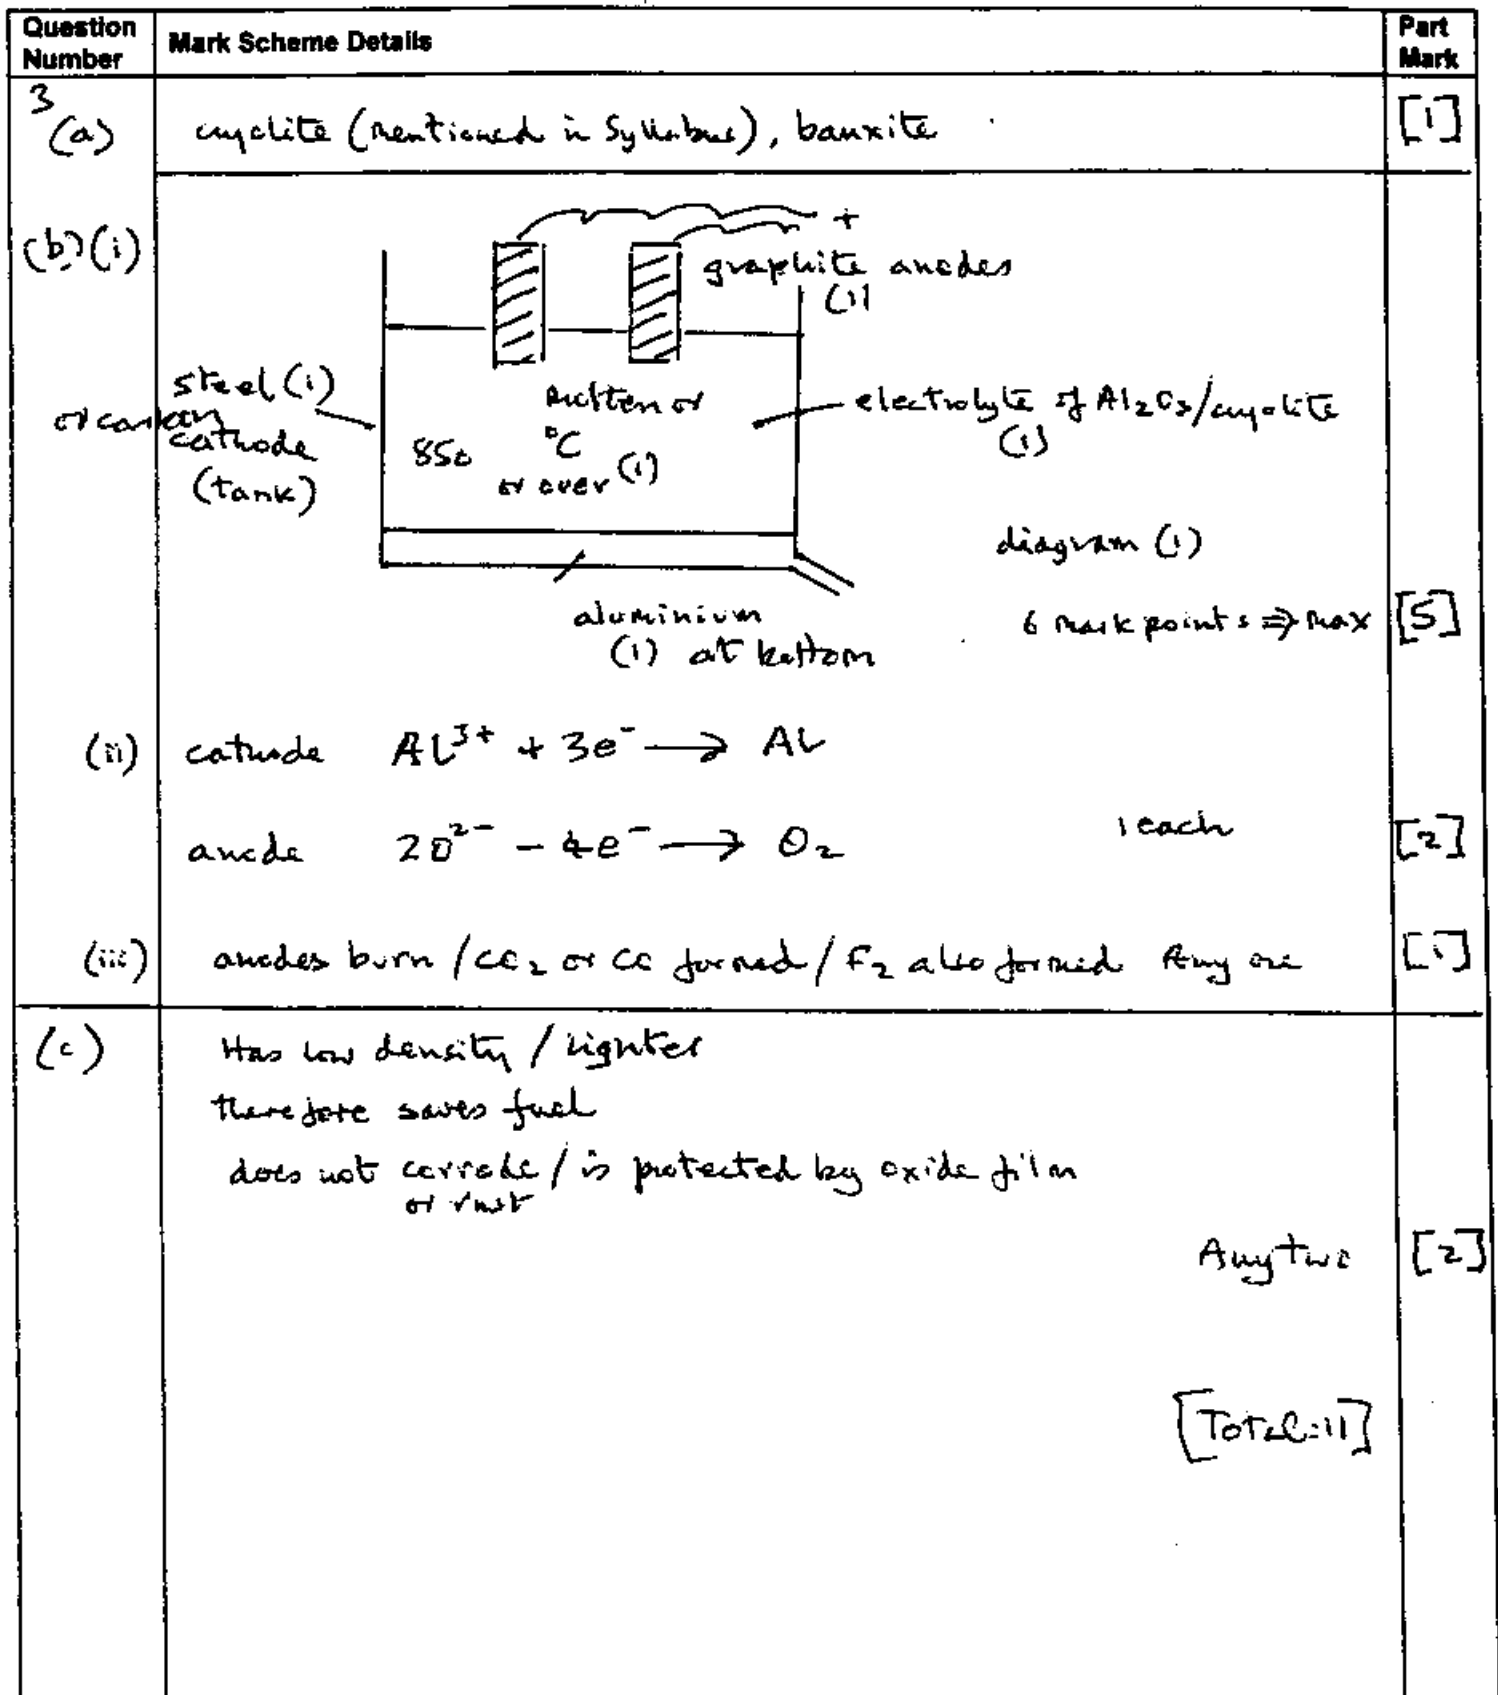 Question Number | Mark Scheme Details | Part Mark
3 (a) cryolite (mentioned in Syllabus), bauxite [1]
(b)(i)
+
graphite anodes
(1)
steel (1)
or carbon
cathode
(tank)
molten or
850 °C
or over (1)
electrolyte of Al2O3/cryolite
(1)
diagram (1)
aluminium
(1) at bottom
6 mark points ⇒ max [5]
(ii) cathode Al³⁺ + 3e⁻ → Al
anode 2O²⁻ - 4e⁻ → O₂ 1 each [2]
(iii) anodes burn / CO2 or CO formed / F2 also formed Any one [1]
(c) Has low density / lighter
therefore saves fuel
does not corrode / is protected by oxide film
or rust
Any two [2]
[Total=11]